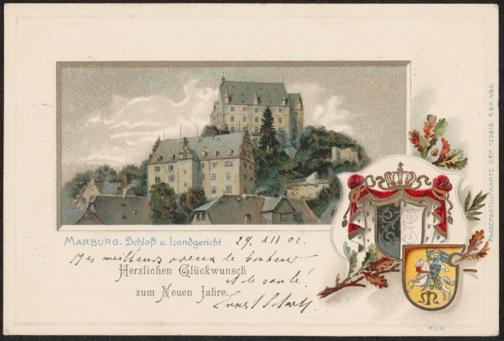 MARBURG. Schloß u. Landgericht. 29. XII. 01.
Mes meilleurs voeux de bonheur
Herzlichen Glückwunsch
et de santé!
zum Neuen Jahre.
Ernst
PASSEPARTOUT-KARTE. DEP.
M